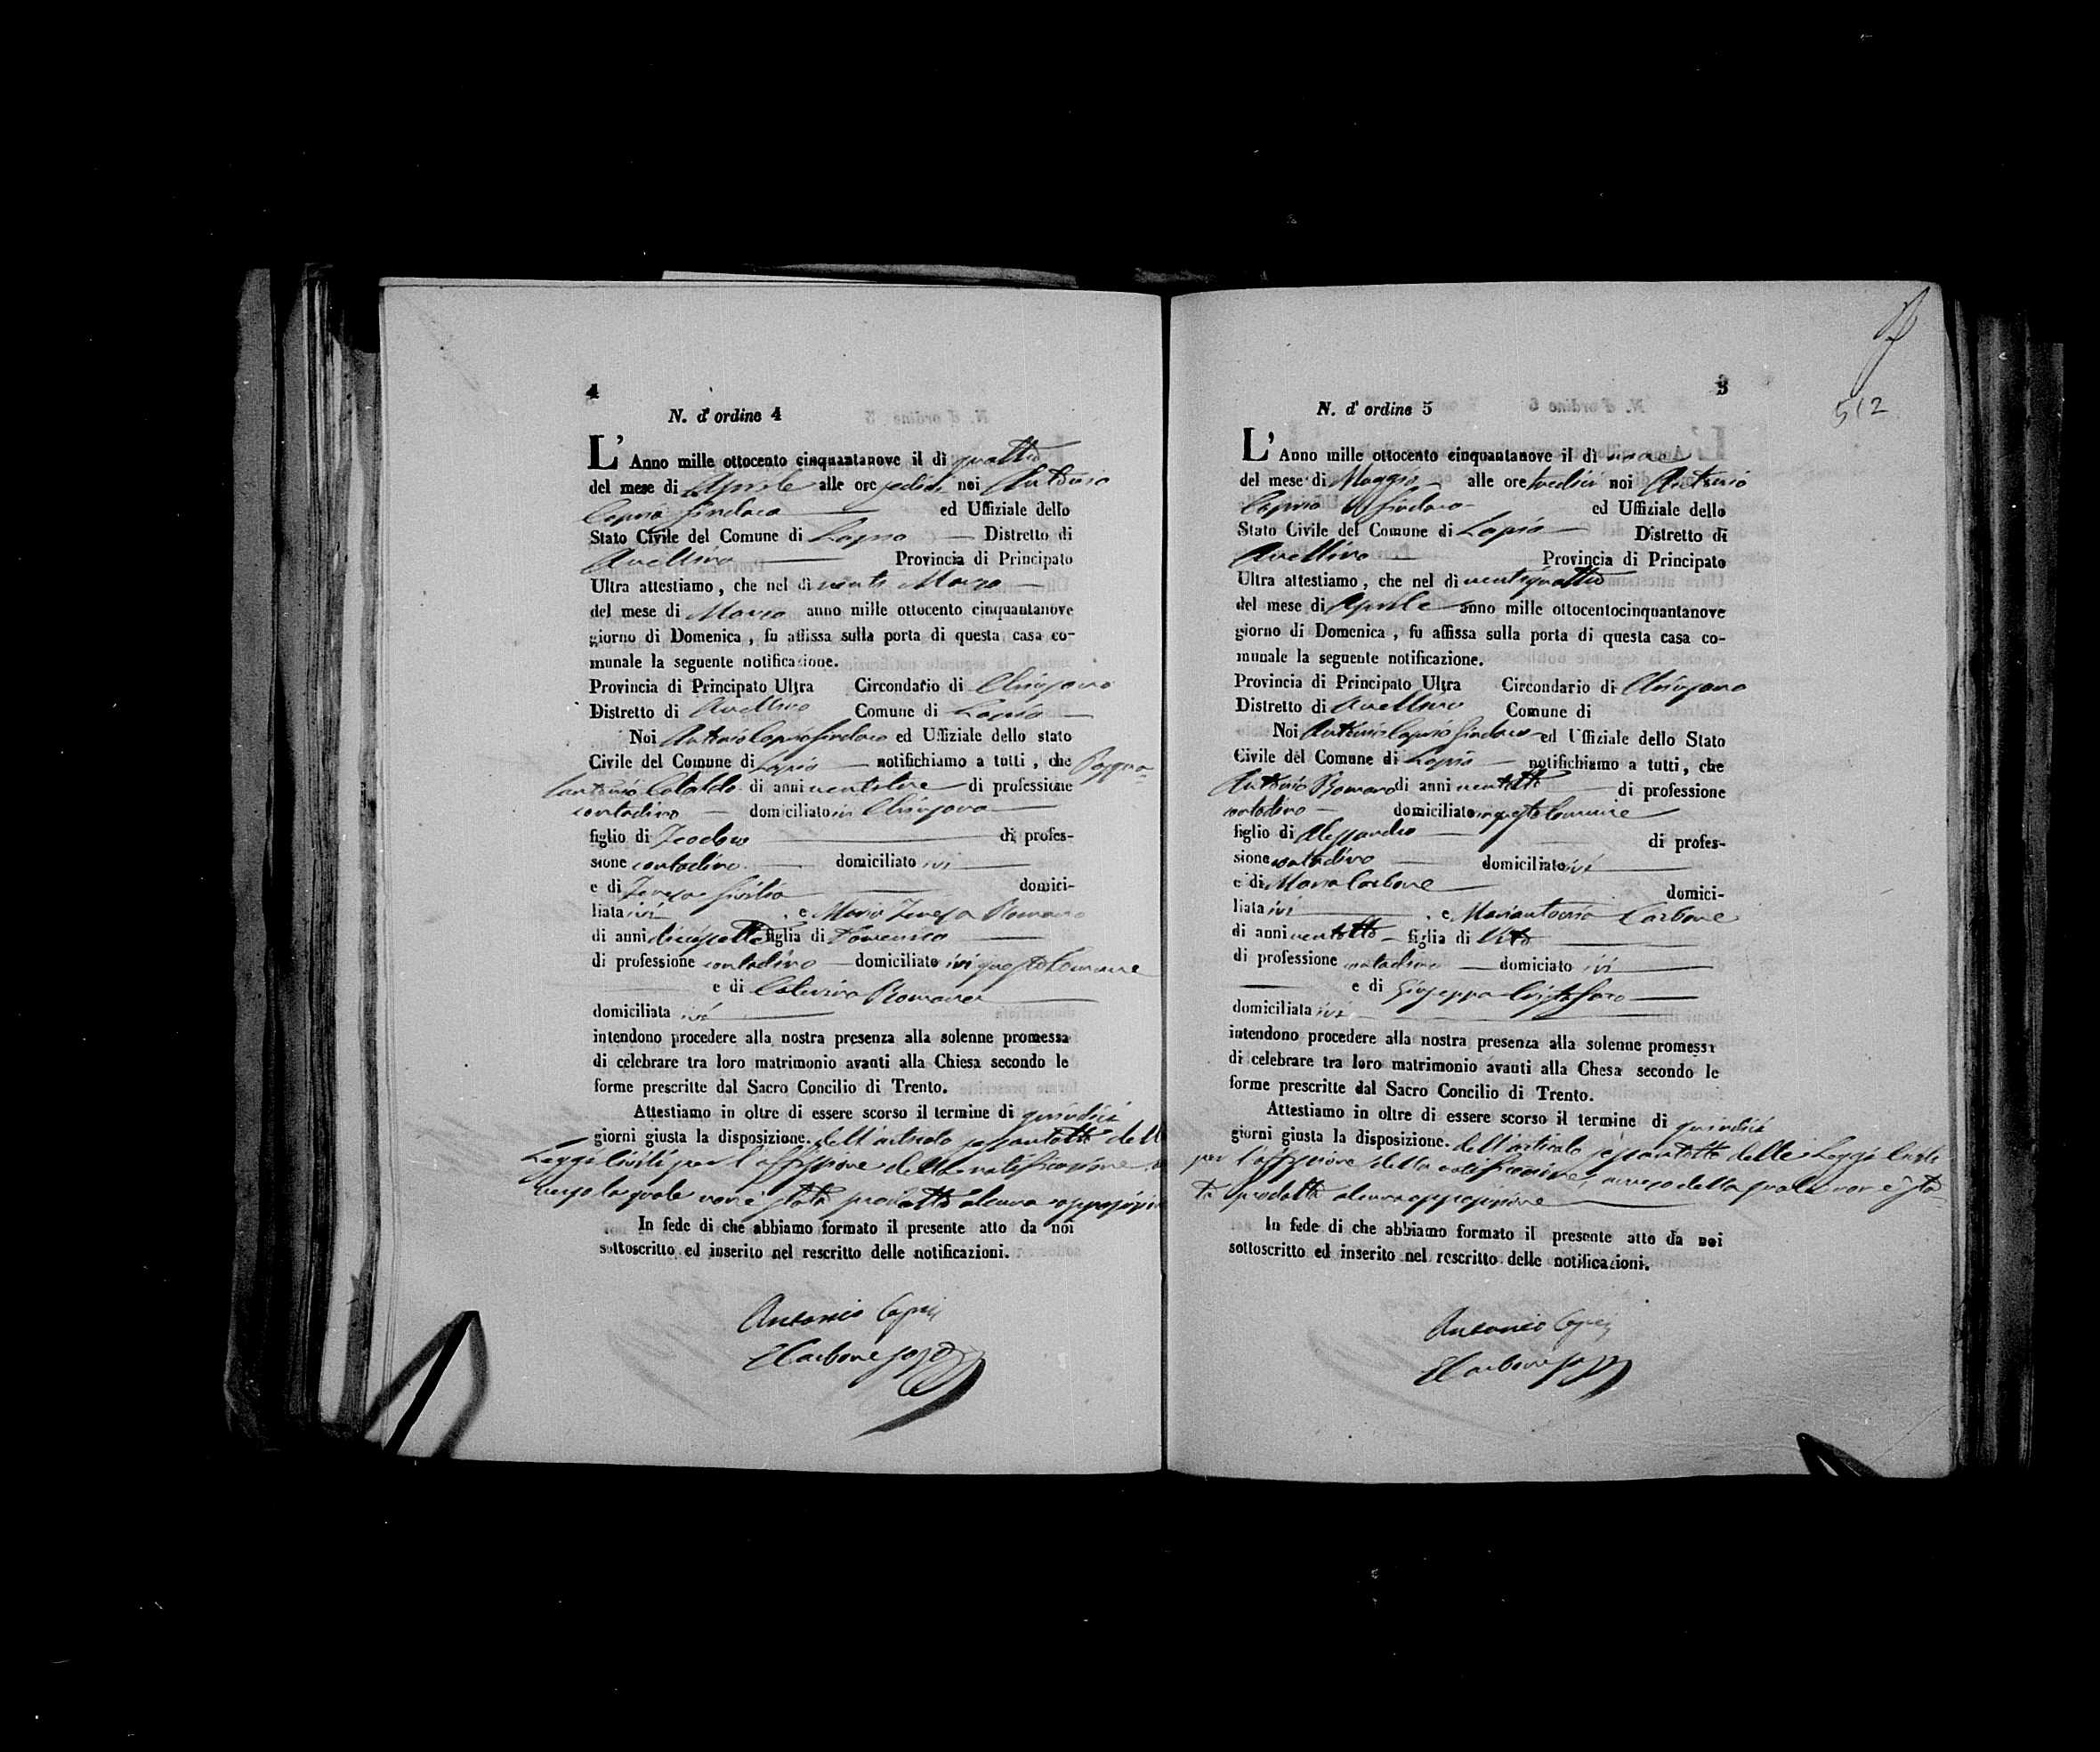 4
N. d' ordine 4
L' Anno mille ottocento cinquantanove il dì quattro
del mese di Aprile alle ore sedici noi Antonio
Caprio Sindaco ed Uffiziale dello
Stato Civile del Comune di Lapio Distretto di
Avellino Provincia di Principato
Ultra attestiamo, che nel dì venti Marzo
del mese di Marzo anno mille ottocento cinquantanove
giorno di Domenica, fu affissa sulla porta di questa casa co-
munale la seguente notificazione.
Provincia di Principato Ultra Circondario di Chiusano
Distretto di Avellino Comune di Lapio
Noi Antonio Caprio Sindaco ed Uffiziale dello stato
Civile del Comune di Lapio notifichiamo a tutti, che
Cataldo di anni ventitre di professione
contadino domiciliato in Chiusano
figlio di Teodoro di profes-
sione contadino domiciliato ivi
e di Teresa domici-
liata ivi, e Maria Teresa Romano
di anni diciasette figlia di Domenico
di professione contadino domiciliato ivi questo Comune
e di Caterina Romano
domiciliata ivi
intendono procedere alla nostra presenza alla solenne promessa
di celebrare tra loro matrimonio avanti alla Chiesa secondo le
forme prescritte dal Sacro Concilio di Trento.
Attestiamo in oltre di essere scorso il termine di quindici
giorni giusta la disposizione. dell'articolo sessantotto delle
Leggi Civili per l'affissione della notificazione
verso la quale non è stata prodotto alcuna opposizione
In fede di che abbiamo formato il presente atto da noi
sottoscritto ed inserito nel rescritto delle notificazioni.
Antonio Caprio
Carbone
5
512
N. d' ordine 5
L' Anno mille ottocento cinquantanove il dì nove
del mese di Maggio alle ore tredici noi Antonio
Caprio Sindaco ed Uffiziale dello
Stato Civile del Comune di Lapio Distretto di
Avellino Provincia di Principato
Ultra attestiamo, che nel dì ventiquattro
del mese di Aprile anno mille ottocentocinquantanove
giorno di Domenica, fu affissa sulla porta di questa casa co-
munale la seguente notificazione.
Provincia di Principato Ultra Circondario di Chiusano
Distretto di Avellino Comune di
Noi Antonio Caprio Sindaco ed Uffiziale dello Stato
Civile del Comune di Lapio notifichiamo a tutti, che
Antonio Romano di anni ventotto di professione
contadino domiciliato in questo Comune
figlio di Alessandro di profes-
sione contadino domiciliato ivi
e di Maria Carbone domici-
liata ivi, e Mariantonia Carbone
di anni ventotto figlia di Vito
di professione contadino domiciato ivi
e di Giuseppa Cristofaro
domiciliata ivi
intendono procedere alla nostra presenza alla solenne promessa
di celebrare tra loro matrimonio avanti alla Chesa secondo le
forme prescritte dal Sacro Concilio di Trento.
Attestiamo in oltre di essere scorso il termine di quindici
giorni giusta la disposizione. dell'articolo sessantotto delle Leggi Civili
per l'affissione della notificazione, verso della quale non è sta-
ta prodotta alcuna opposizione
In fede di che abbiamo formato il presente atto da noi
sottoscritto ed inserito nel rescritto delle notificazioni.
Antonio Caprio
Carbone